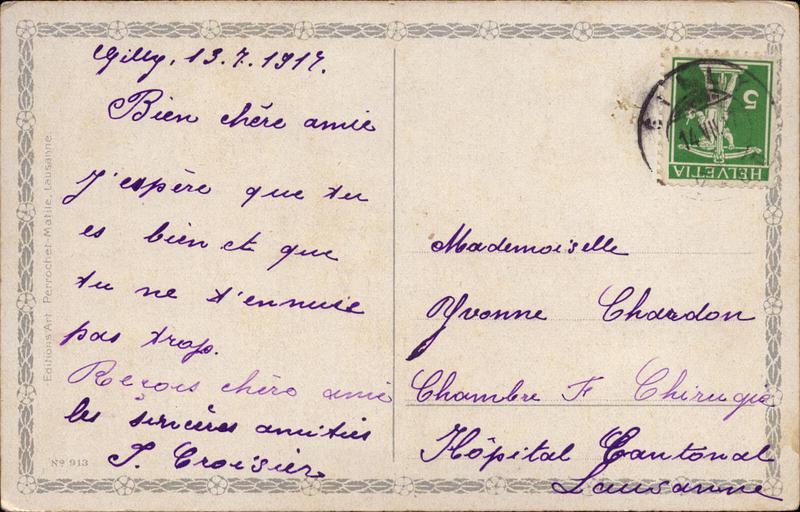 Gilly, 13.7.1917.
Bien chère amie
J'espère que tu
es bien et que
tu ne t'ennuie
pas trop.
Reçois chère amie
les sincères amitiés
J. Croisier
Mademoiselle
Yvonne Chardon
Chambre F Chirugie
Hôpital Cantonal
Lausanne
HELVETIA
5
14 VII
Editions Art. Perrochet-Matile, Lausanne
No 913